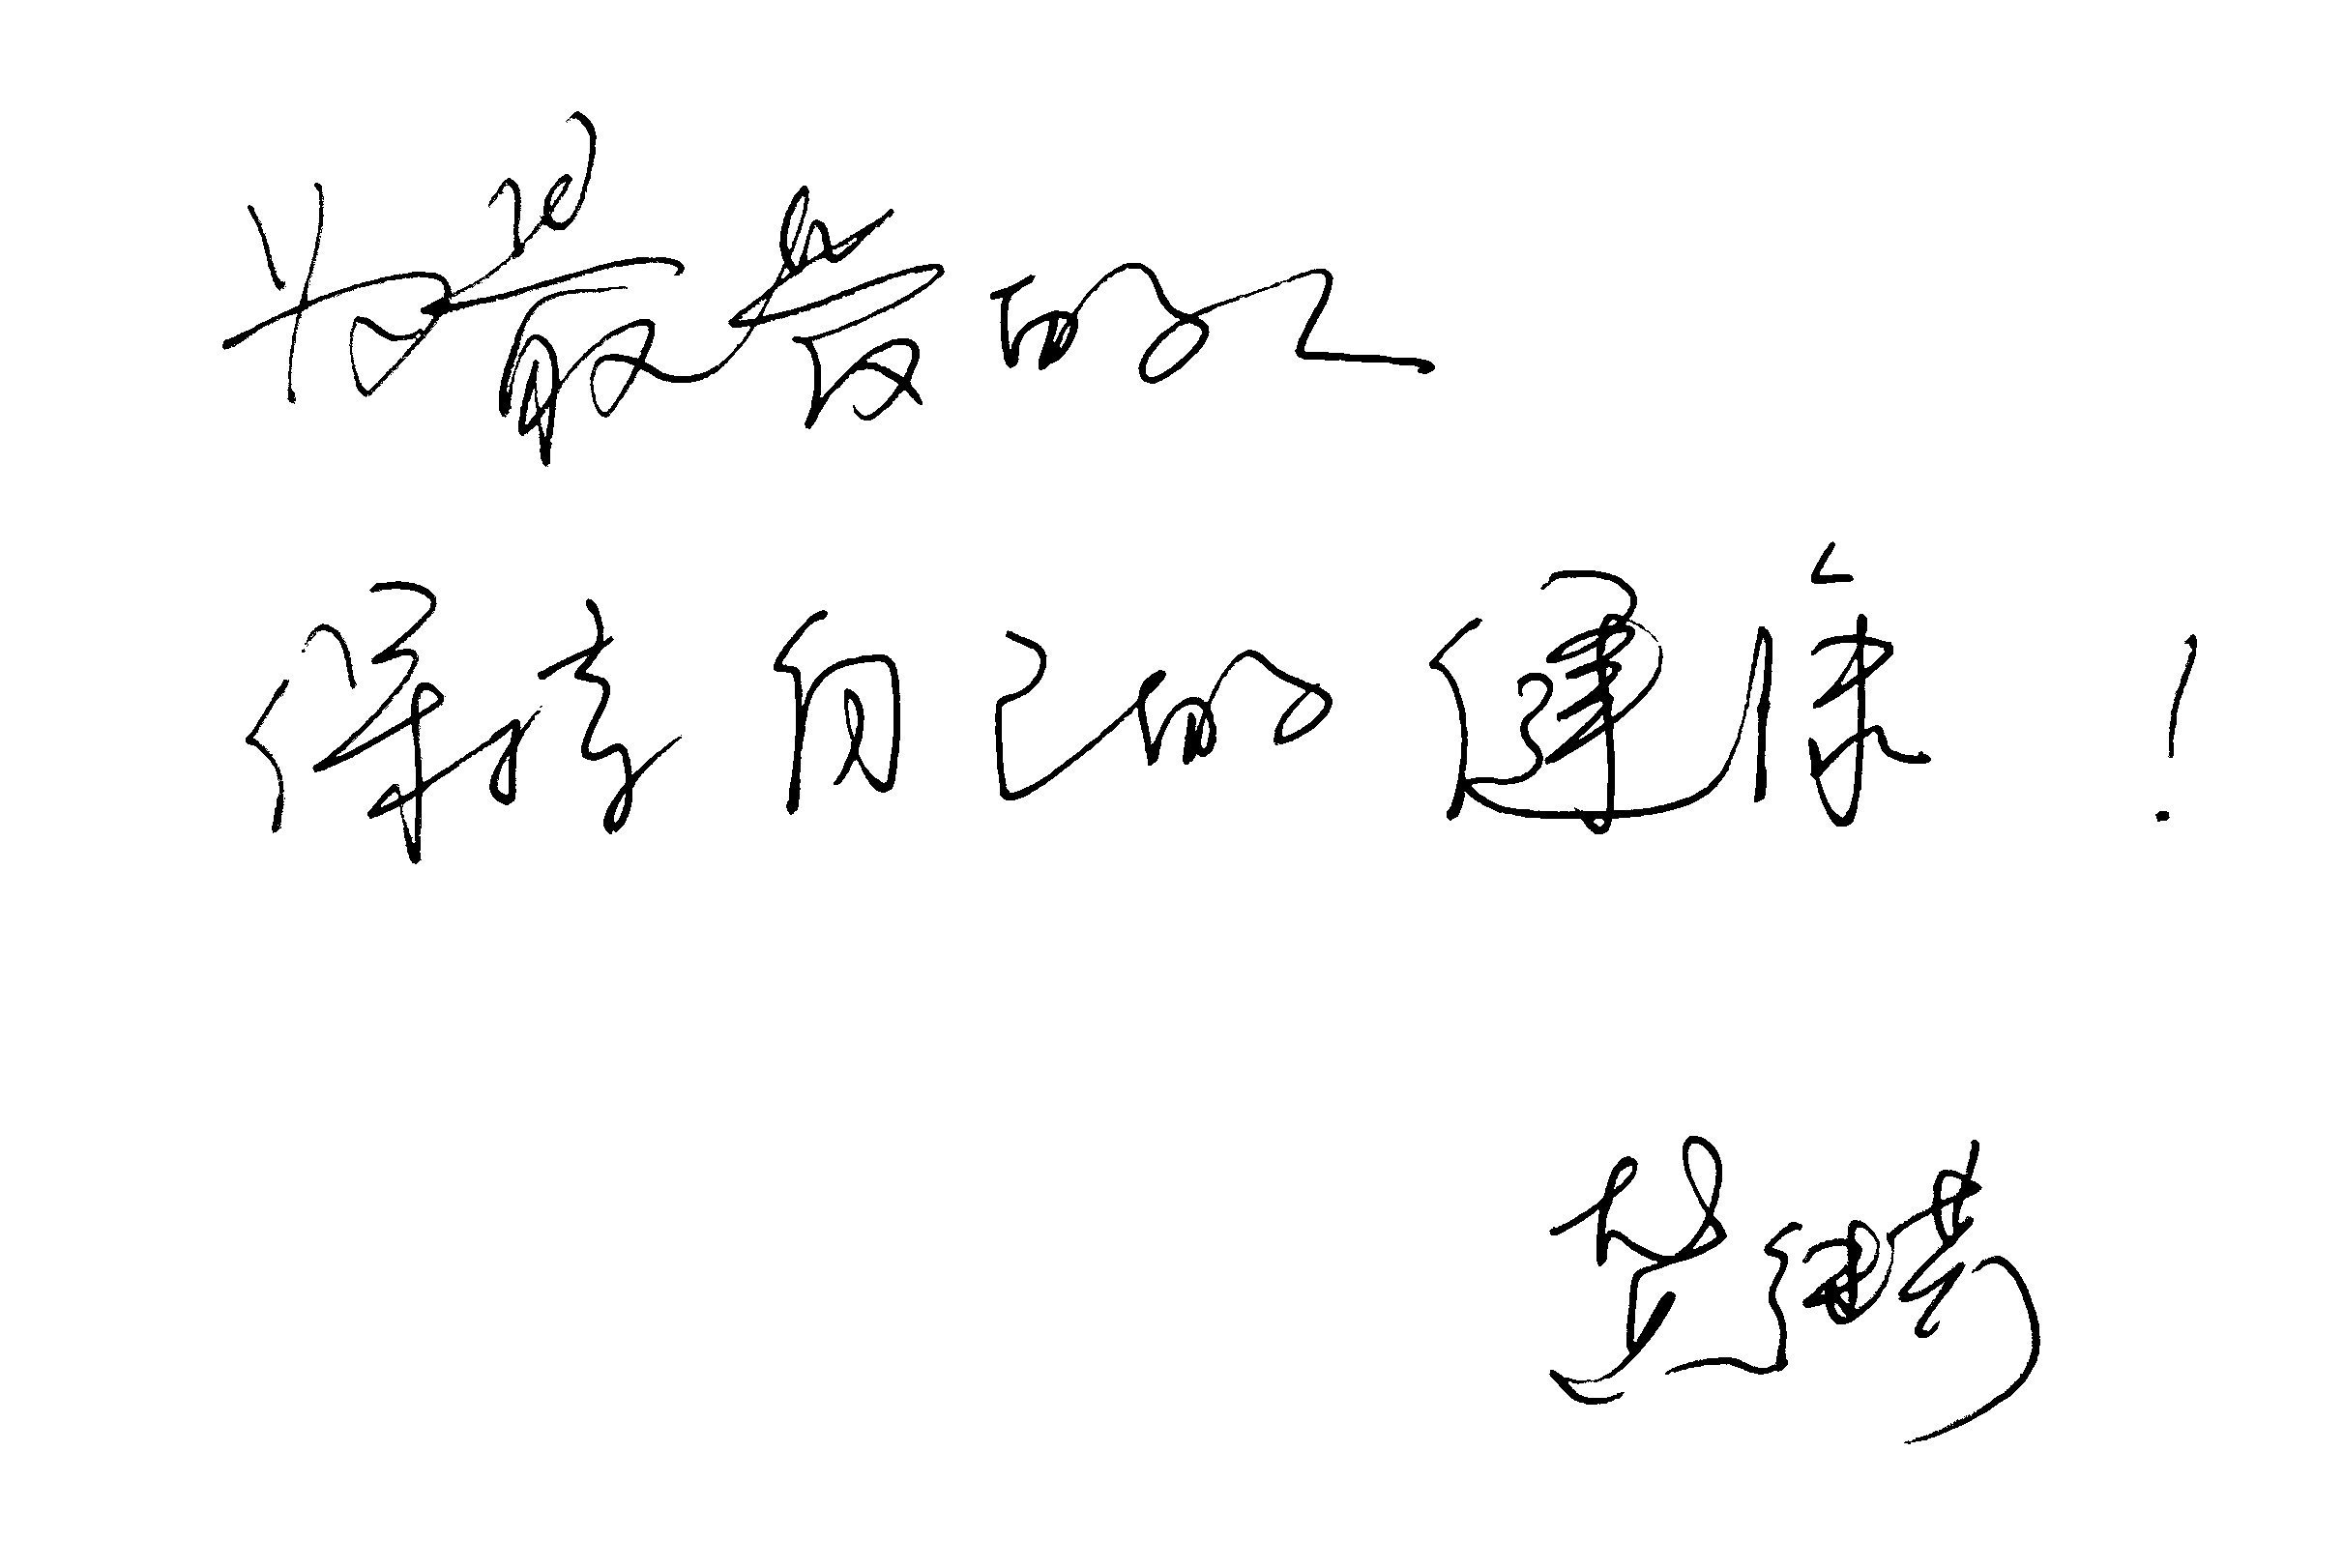 为最爱的人
保持自己的健康!